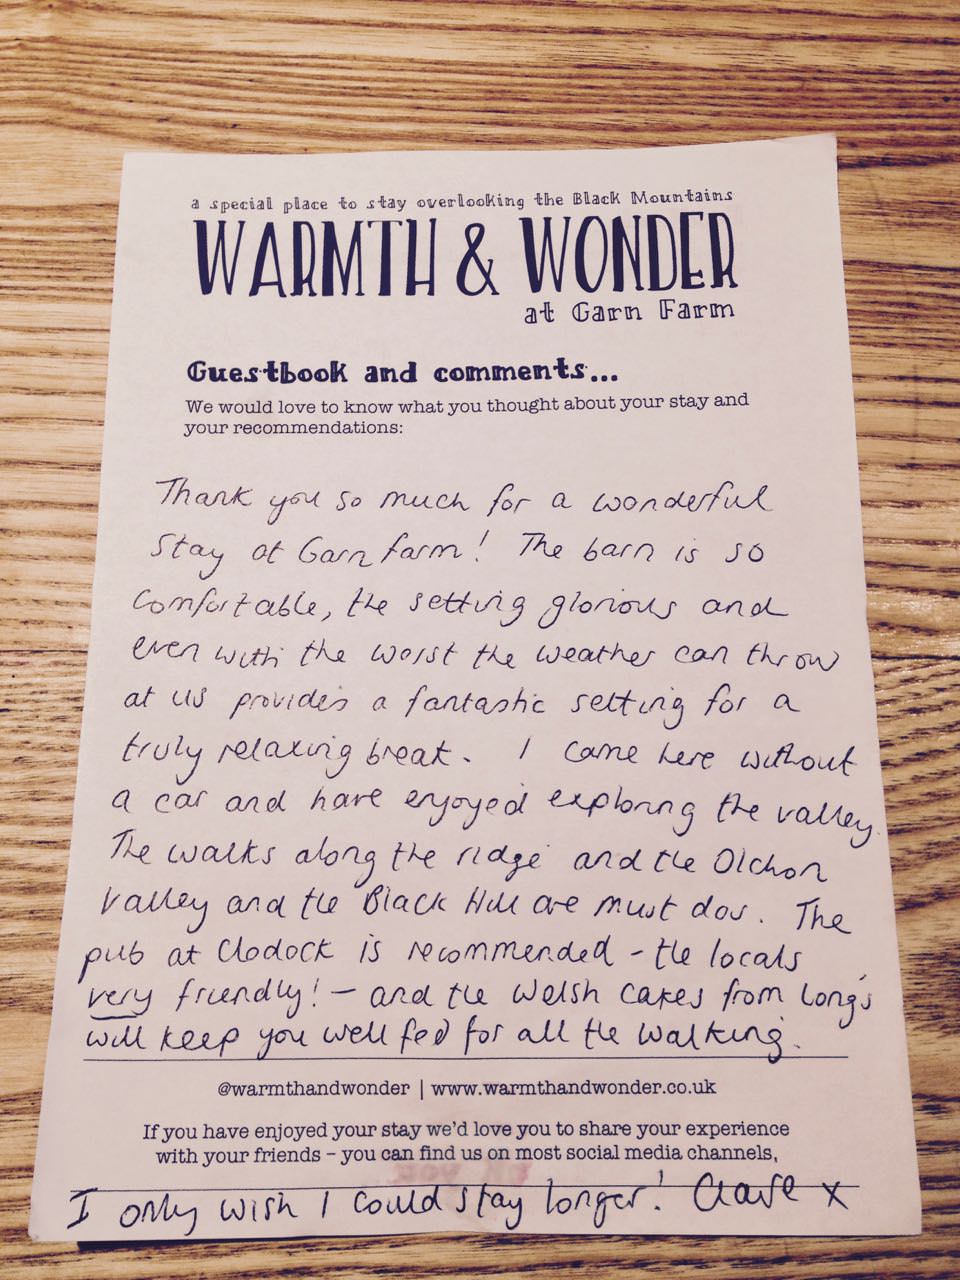 a special place to stay overlooking the Black Mountains
WARMTH & WONDER
at Garn Farm
Guestbook and comments...
We would love to know what you thought about your stay and
your recommendations:
Thank you so much for a wonderful
stay at Garn farm! The barn is so
comfortable, the setting glorious and
even with the worst the weather can throw
at us provides a fantastic setting for a
truly relaxing break. I came here without
a car and have enjoyed exploring the valley.
The walks along the ridge and the Olchon
Valley and the Black Hill are must dos. The
pub at Clodock is recommended - the locals
very friendly! - and the Welsh cakes from Long's
will keep you well fed for all the walking.
@warmthandwonder | www.warmthandwonder.co.uk
If you have enjoyed your stay we'd love you to share your experience
with your friends – you can find us on most social media channels,
I only wish I could stay longer! Clare x